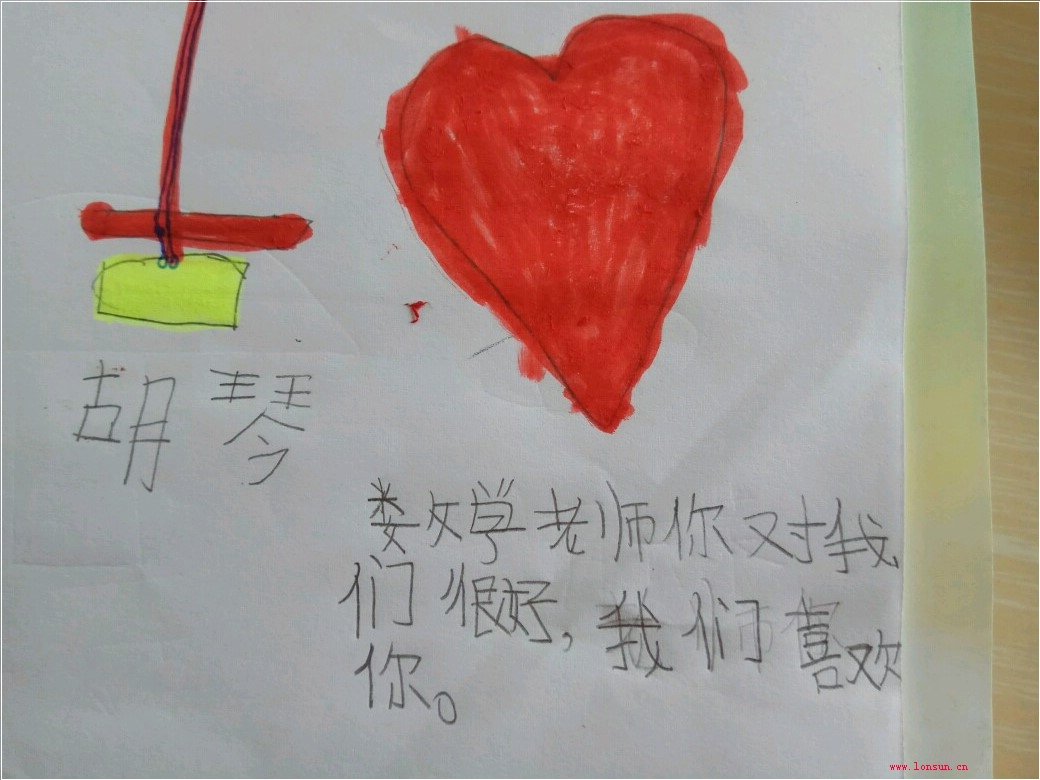 胡琴
娄文学老师你对我
们很好,我们喜欢
你。
www.lonsun.cn